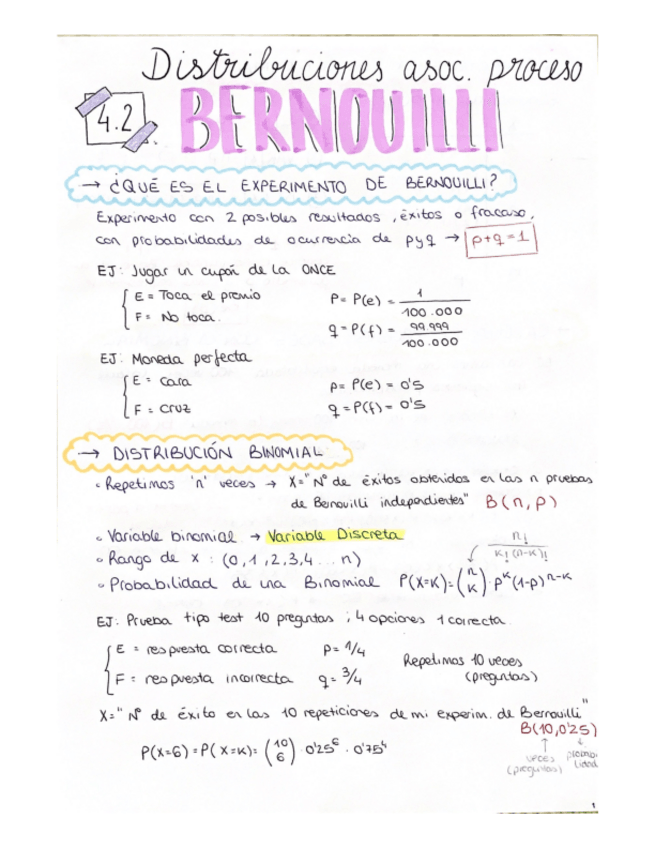 Distribuciones asoc. proceso
4.2. BERNOUILLI
→ ¿QUÉ ES EL EXPERIMENTO DE BERNOUILLI?
Experimento con 2 posibles resultados, éxitos o fracaso,
con probabilidades de ocurrencia de p y q → p+q=1
EJ: Jugar un cupón de la ONCE
E = Toca el premio P = P(e) = 1/100.000
F = No toca. q = P(f) = 99.999/100.000
EJ: Moneda perfecta
E = cara p = P(e) = 0'5
F = cruz q = P(f) = 0'5
→ DISTRIBUCIÓN BINOMIAL
• Repetimos 'n' veces → X = "Nº de éxitos obtenidos en las n pruebas
de Bernouilli independientes" B(n,p)
• Variable binomial → Variable Discreta
n!/K!(n-K)!
• Rango de x : (0,1,2,3,4...n)
• Probabilidad de una Binomial P(X=K) = (n K) · p^K (1-p)^n-K
EJ: Prueba tipo test 10 preguntas ; 4 opciones 1 correcta.
E = respuesta correcta P = 1/4
F = respuesta incorrecta q = 3/4
Repetimos 10 veces
(preguntas)
X = "Nº de éxito en las 10 repeticiones de mi experim. de Bernouilli"
B(10,0'25)
P(X=6) = P(X=K) = (10 6) · 0'25^6 · 0'75^4
↑ veces (preguntas)
↓ probabilidad
1